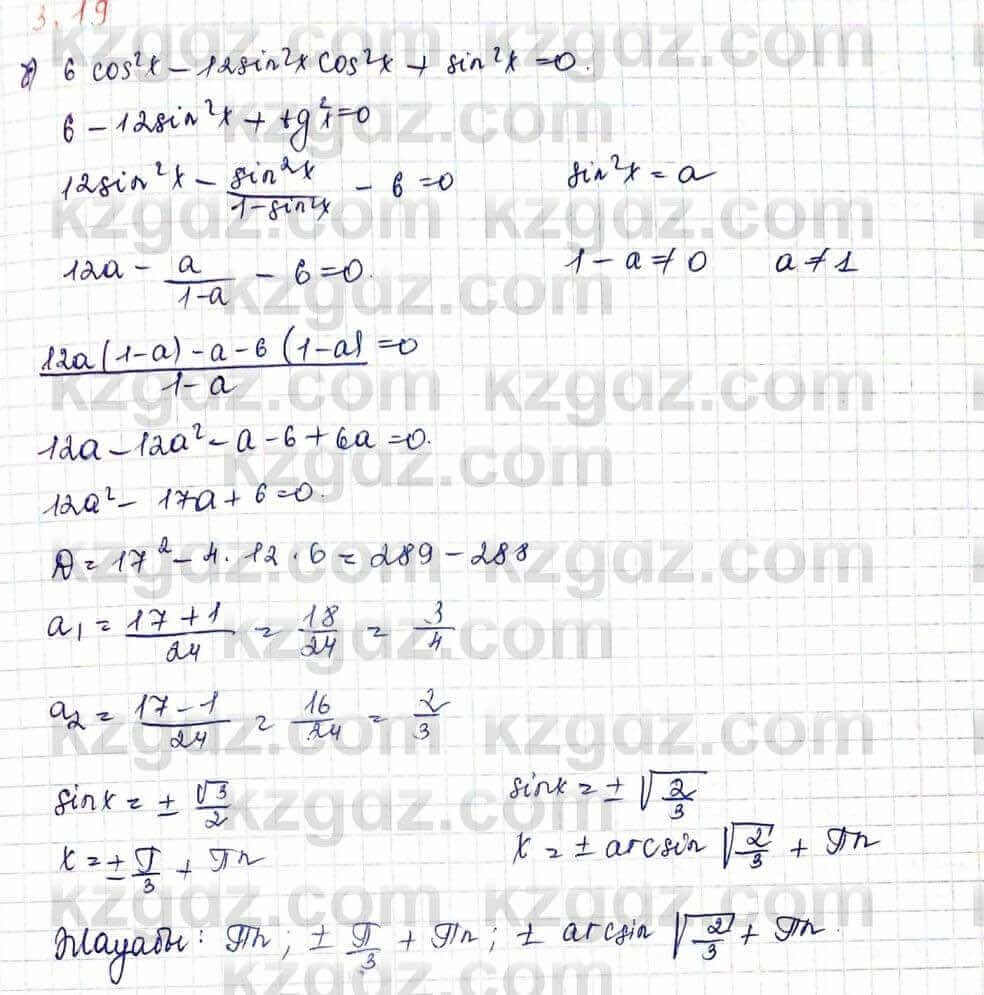 3.19
8) 6 cos²x − 12sin²x cos²x + sin²x = 0.
6 − 12sin²x + tg²x = 0
12sin²x − sin²x/(1−sin²x) − 6 = 0 sin²x = a
12a − a/(1−a) − 6 = 0. 1−a ≠ 0 a ≠ 1
(12a(1−a) − a − 6(1−a))/(1−a) = 0
12a − 12a² − a − 6 + 6a = 0.
12a² − 17a + 6 = 0.
D = 17² − 4·12·6 = 289 − 288
a₁ = (17+1)/24 = 18/24 = 3/4
a₂ = (17−1)/24 = 16/24 = 2/3
sinx = ± √3/2 sinx = ± √(2/3)
x = ± π/3 + πn x = ± arcsin √(2/3) + πn
Жауабы: πn; ± π/3 + πn; ± arcsin √(2/3) + πn.
kzgdz.com